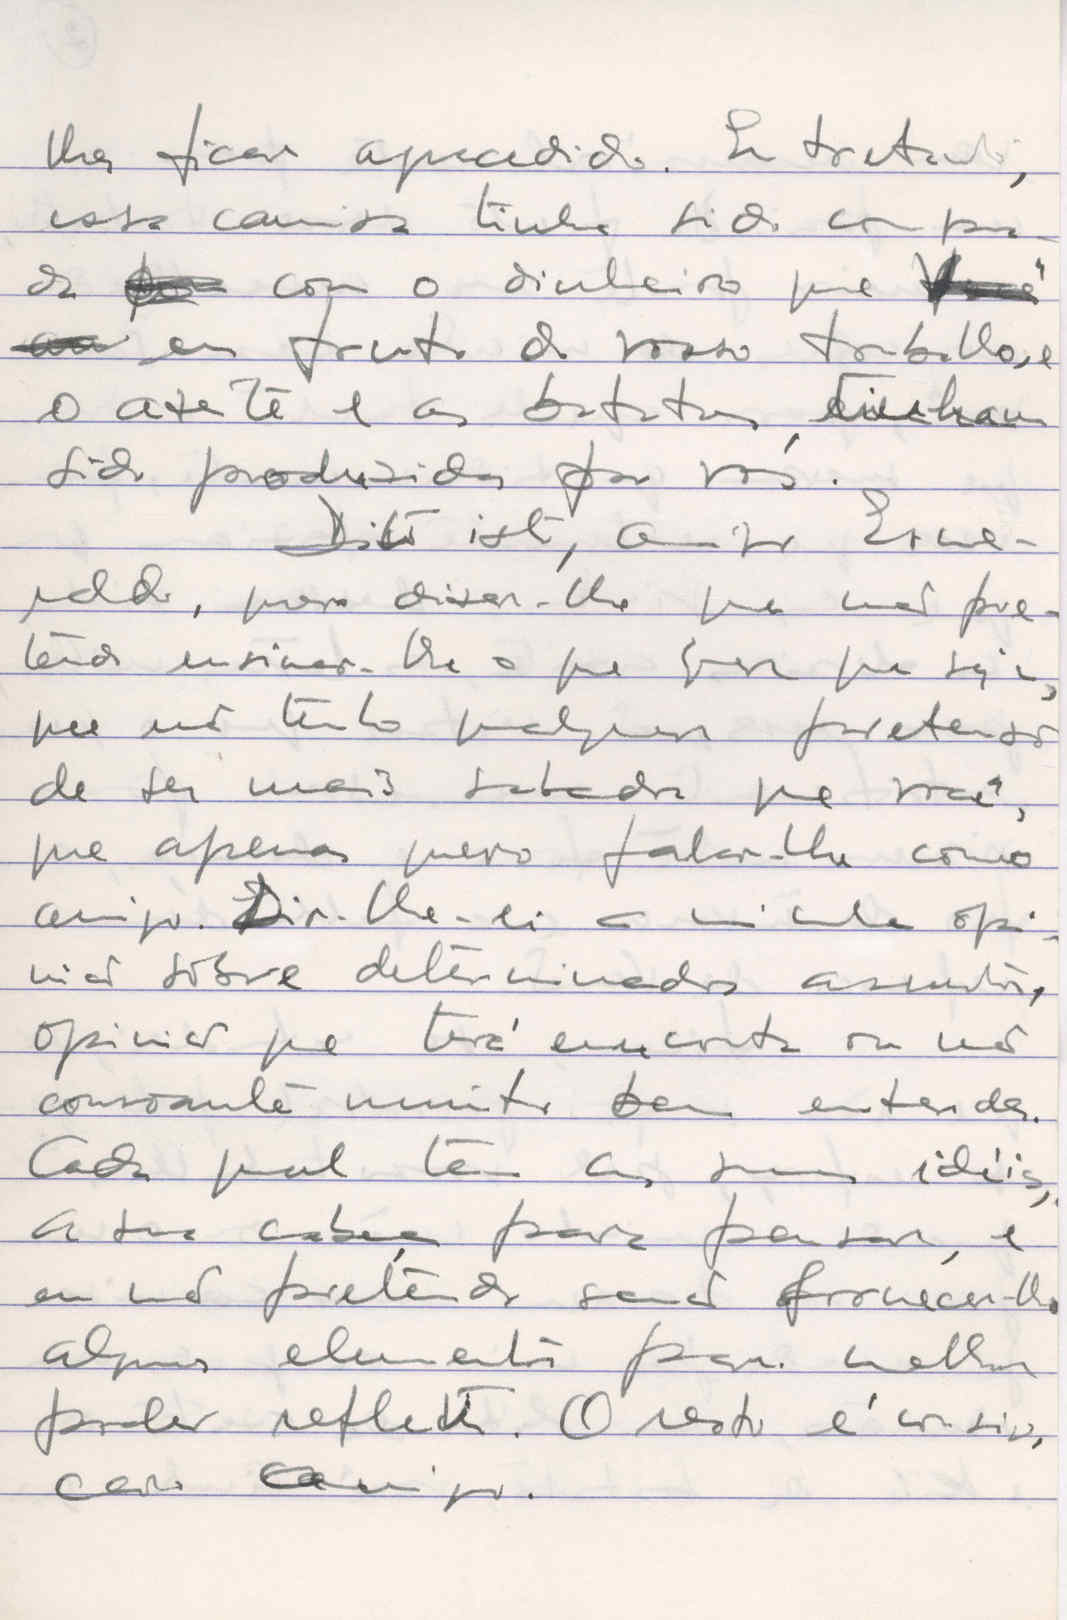 lhes ficar agradecido. Entretanto,
essa camisa tinha sido compra-
da com o dinheiro que
era fruto do vosso trabalho, e
o azeite e as batatas tinham
sido produzidas por vós.
Dito isto, amigo Esme-
raldo, para dizer-lhe que não pre-
tendo ensinar-lhe o que quer que seja,
que não tenho qualquer pretensão
de ser mais sabedor que você,
que apenas quero falar-lhe como
amigo. Dir-lhe-ei a minha opi-
nião sôbre determinados assuntos,
opinião que terá em conta ou não
consoante muito bem entender.
Cada qual tem as suas idéias,
a sua cabeça para pensar, e
eu não pretendo senão fornecer-lhe
alguns elementos para melhor
poder refletir. O resto é consigo,
caro amigo.